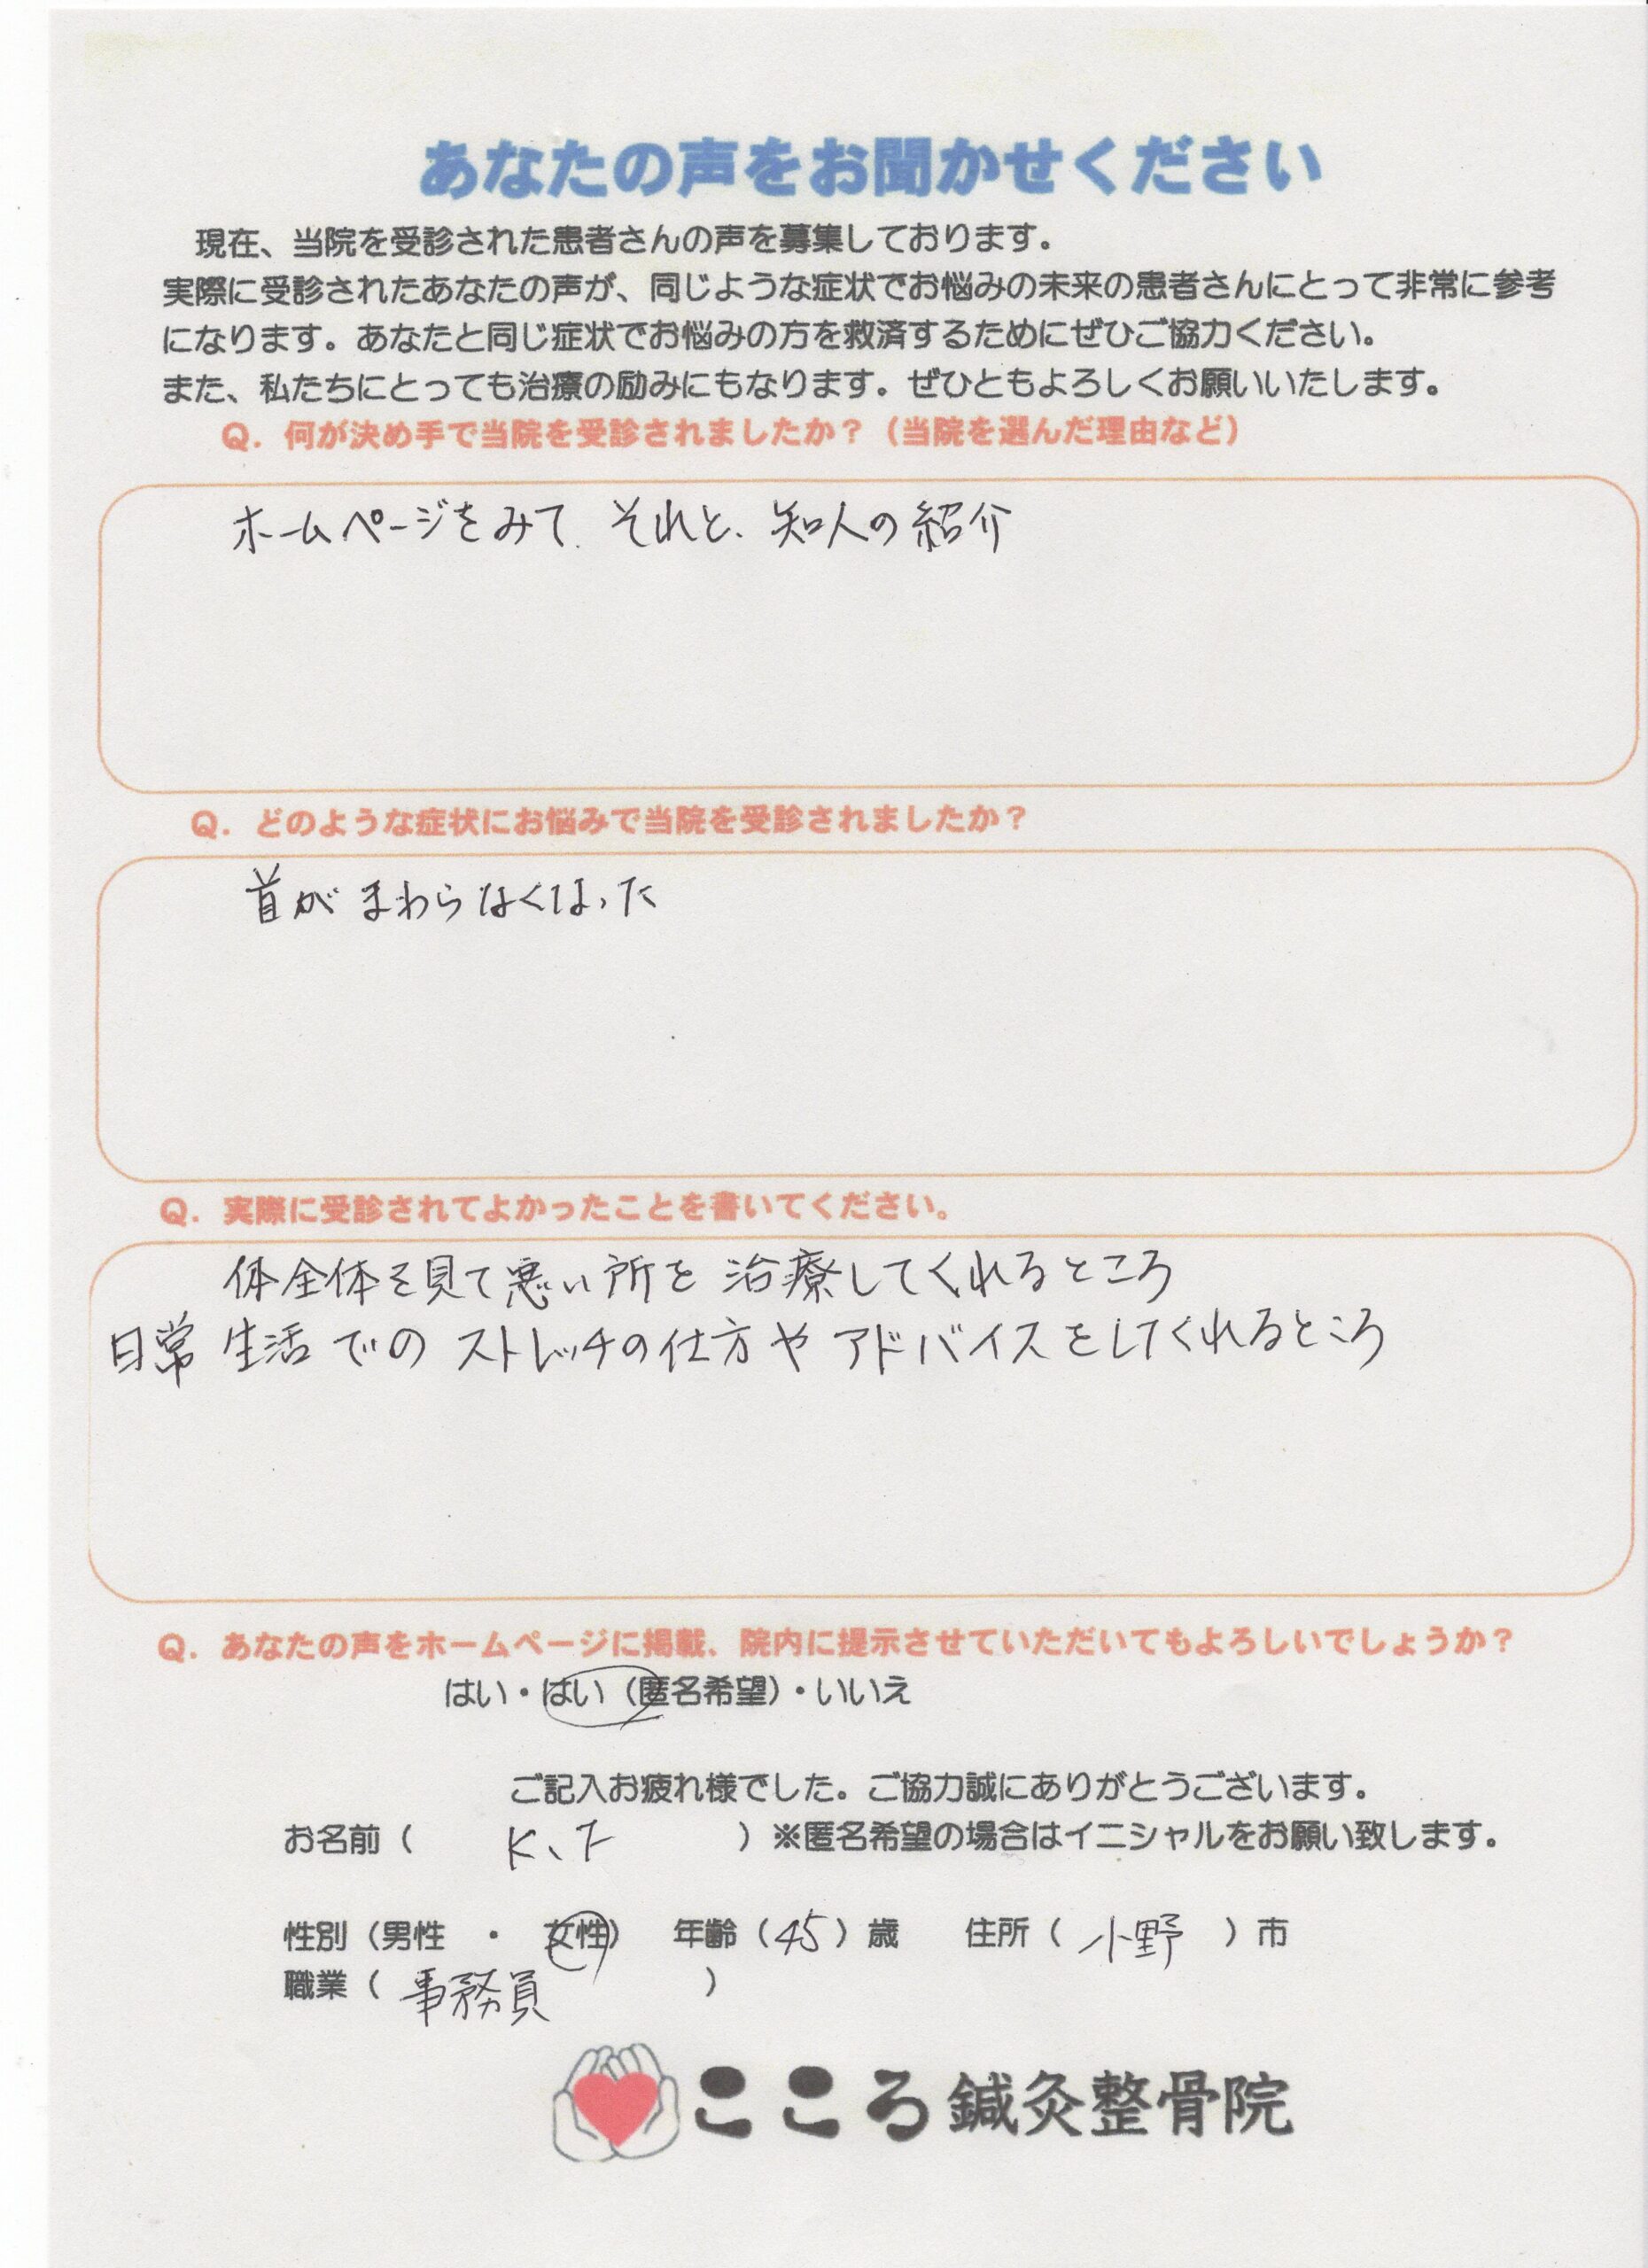 あなたの声をお聞かせください
現在、当院を受診された患者さんの声を募集しております。
実際に受診されたあなたの声が、同じような症状でお悩みの未来の患者さんにとって非常に参考
になります。あなたと同じ症状でお悩みの方を救済するためにぜひご協力ください。
また、私たちにとっても治療の励みにもなります。ぜひともよろしくお願いいたします。
Q. 何が決め手で当院を受診されましたか？（当院を選んだ理由など）
ホームページをみて、それと、知人の紹介
Q. どのような症状にお悩みで当院を受診されましたか？
首がまわらなくなった
Q. 実際に受診されてよかったことを書いてください。
体全体を見て悪い所を治療してくれるところ
日常生活でのストレッチの仕方やアドバイスをしてくれるところ
Q. あなたの声をホームページに掲載、院内に提示させていただいてもよろしいでしょうか？
はい・はい（匿名希望）・いいえ
ご記入お疲れ様でした。ご協力誠にありがとうございます。
お名前（ K、F ）※匿名希望の場合はイニシャルをお願い致します。
性別（男性 ・ 女性） 年齢（45）歳 住所（ 小野 ）市
職業（ 事務員 ）
こころ鍼灸整骨院